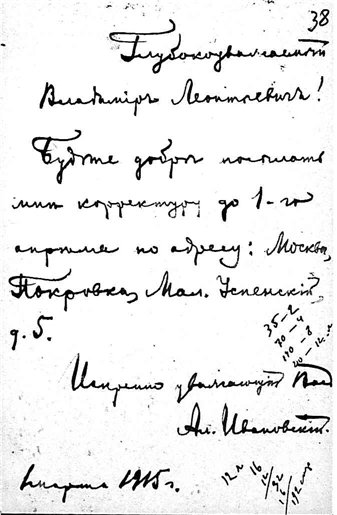 38
Глубокоуважаемый
Владимiръ Леонтьевичъ!
Будьте добры посылать
мнѣ корректуру до 1-го
апрѣля по адресу: Москва,
Покровка, Мал. Успенскiй,
д. 5.
35-2
70-4
140-8
Искренно уважающiй Васъ
Ал. Ивановскiй.
марта 1915 г.
12 л 16